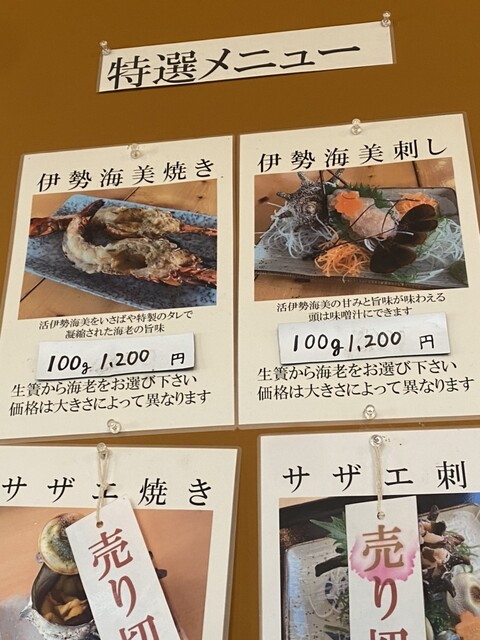 特選メニュー
伊勢海美焼き
活伊勢海美をいさばや特製のタレで
凝縮された海老の旨味
100g 1,200 円
生簀から海老をお選び下さい
価格は大きさによって異なります
伊勢海美刺し
活伊勢海美の甘みと旨味が味わえる
頭は味噌汁にできます
100g 1,200 円
生簀から海老をお選び下さい
価格は大きさによって異なります
サザエ焼き
売り切
サザエ刺
売り切